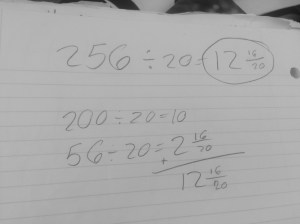 256 ÷ 20 = 12 16/20
200 ÷ 20 = 10
56 ÷ 20 = 2 16/20
+
12 16/20